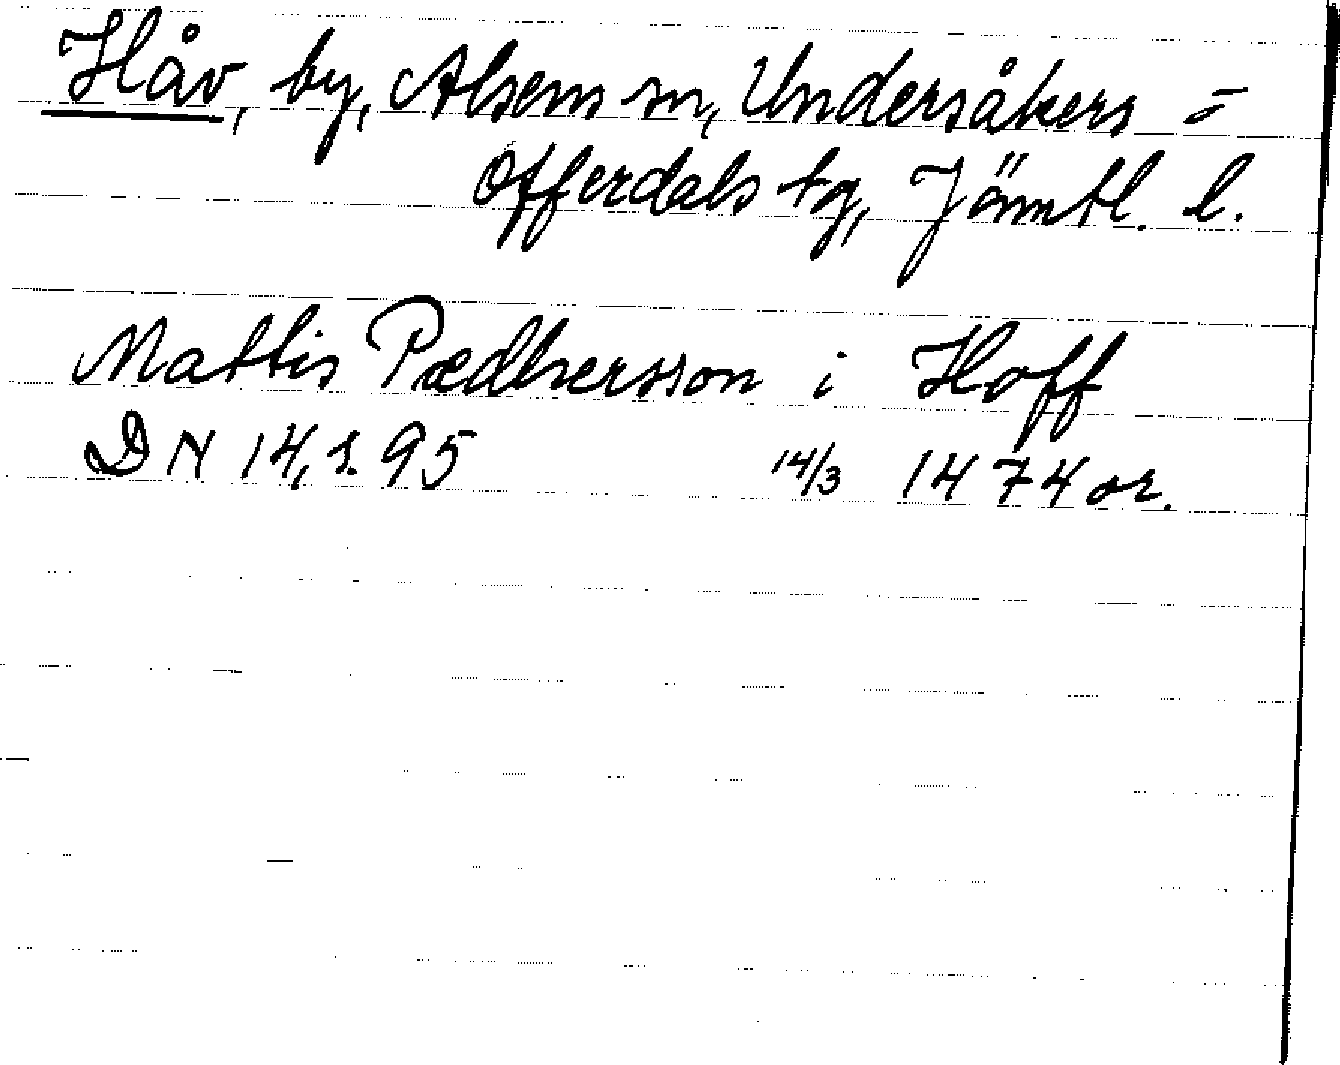 Håv, by, Alsens sn, Undersåkers =
Offerdals tg, Jämtl. l.
Mattis Pædhersson i Hoff
DN 14, s. 95 14/3 1474 or.